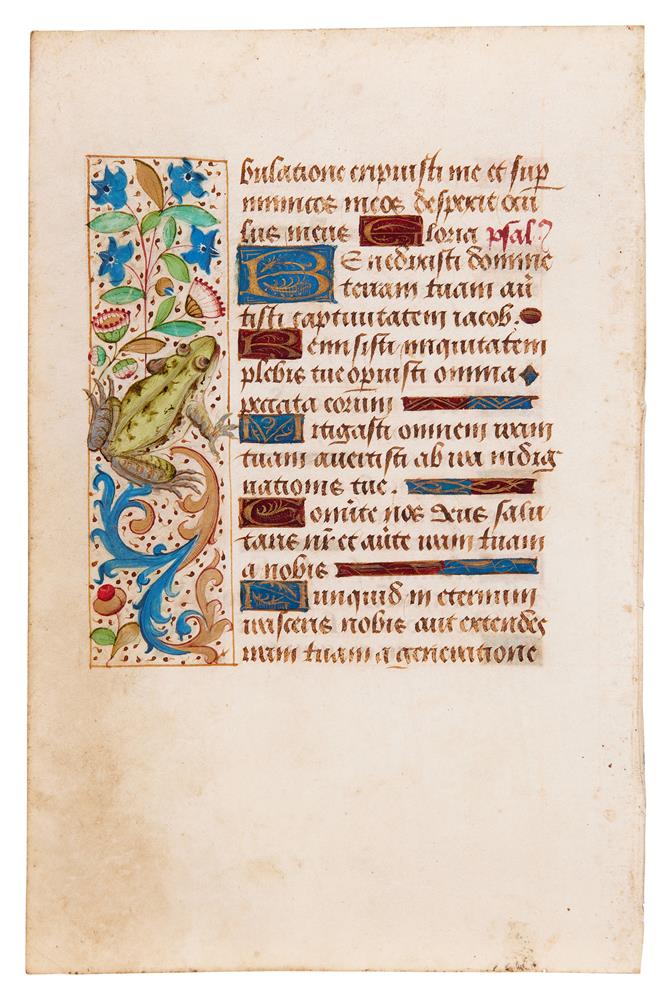 bulatione eripuisti me et sup
inimicos meos despexit ocu
lus meus Gloria psal
Benedixisti domine
terram tuam au̅
tisti captiuitatem iacob.
Remisisti iniquitatem
plebis tue operuisti omnia
peccata eorum
Mitigasti omnem iram
tuam auertisti ab ira indig
nationis tue.
Conu̅te nos deus salu
taris nr̅ et au̅te iram tuam
a nobis
Nunquid in eternum
irasceris nobis aut extendes
iram tuam a generatione